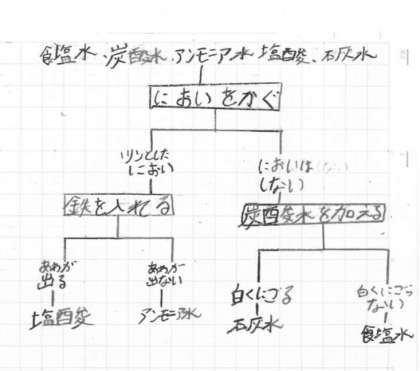 食塩水、炭酸水、アンモニア水 塩酸、石灰水
においをかぐ
ツンとした
におい
においは
(ない)
しない)
鉄を入れる
炭酸水を加える
あわが
出る
あわが
出ない
白くにごる
白くにごら
ない)
塩酸
アンモニア水
石灰水
食塩水